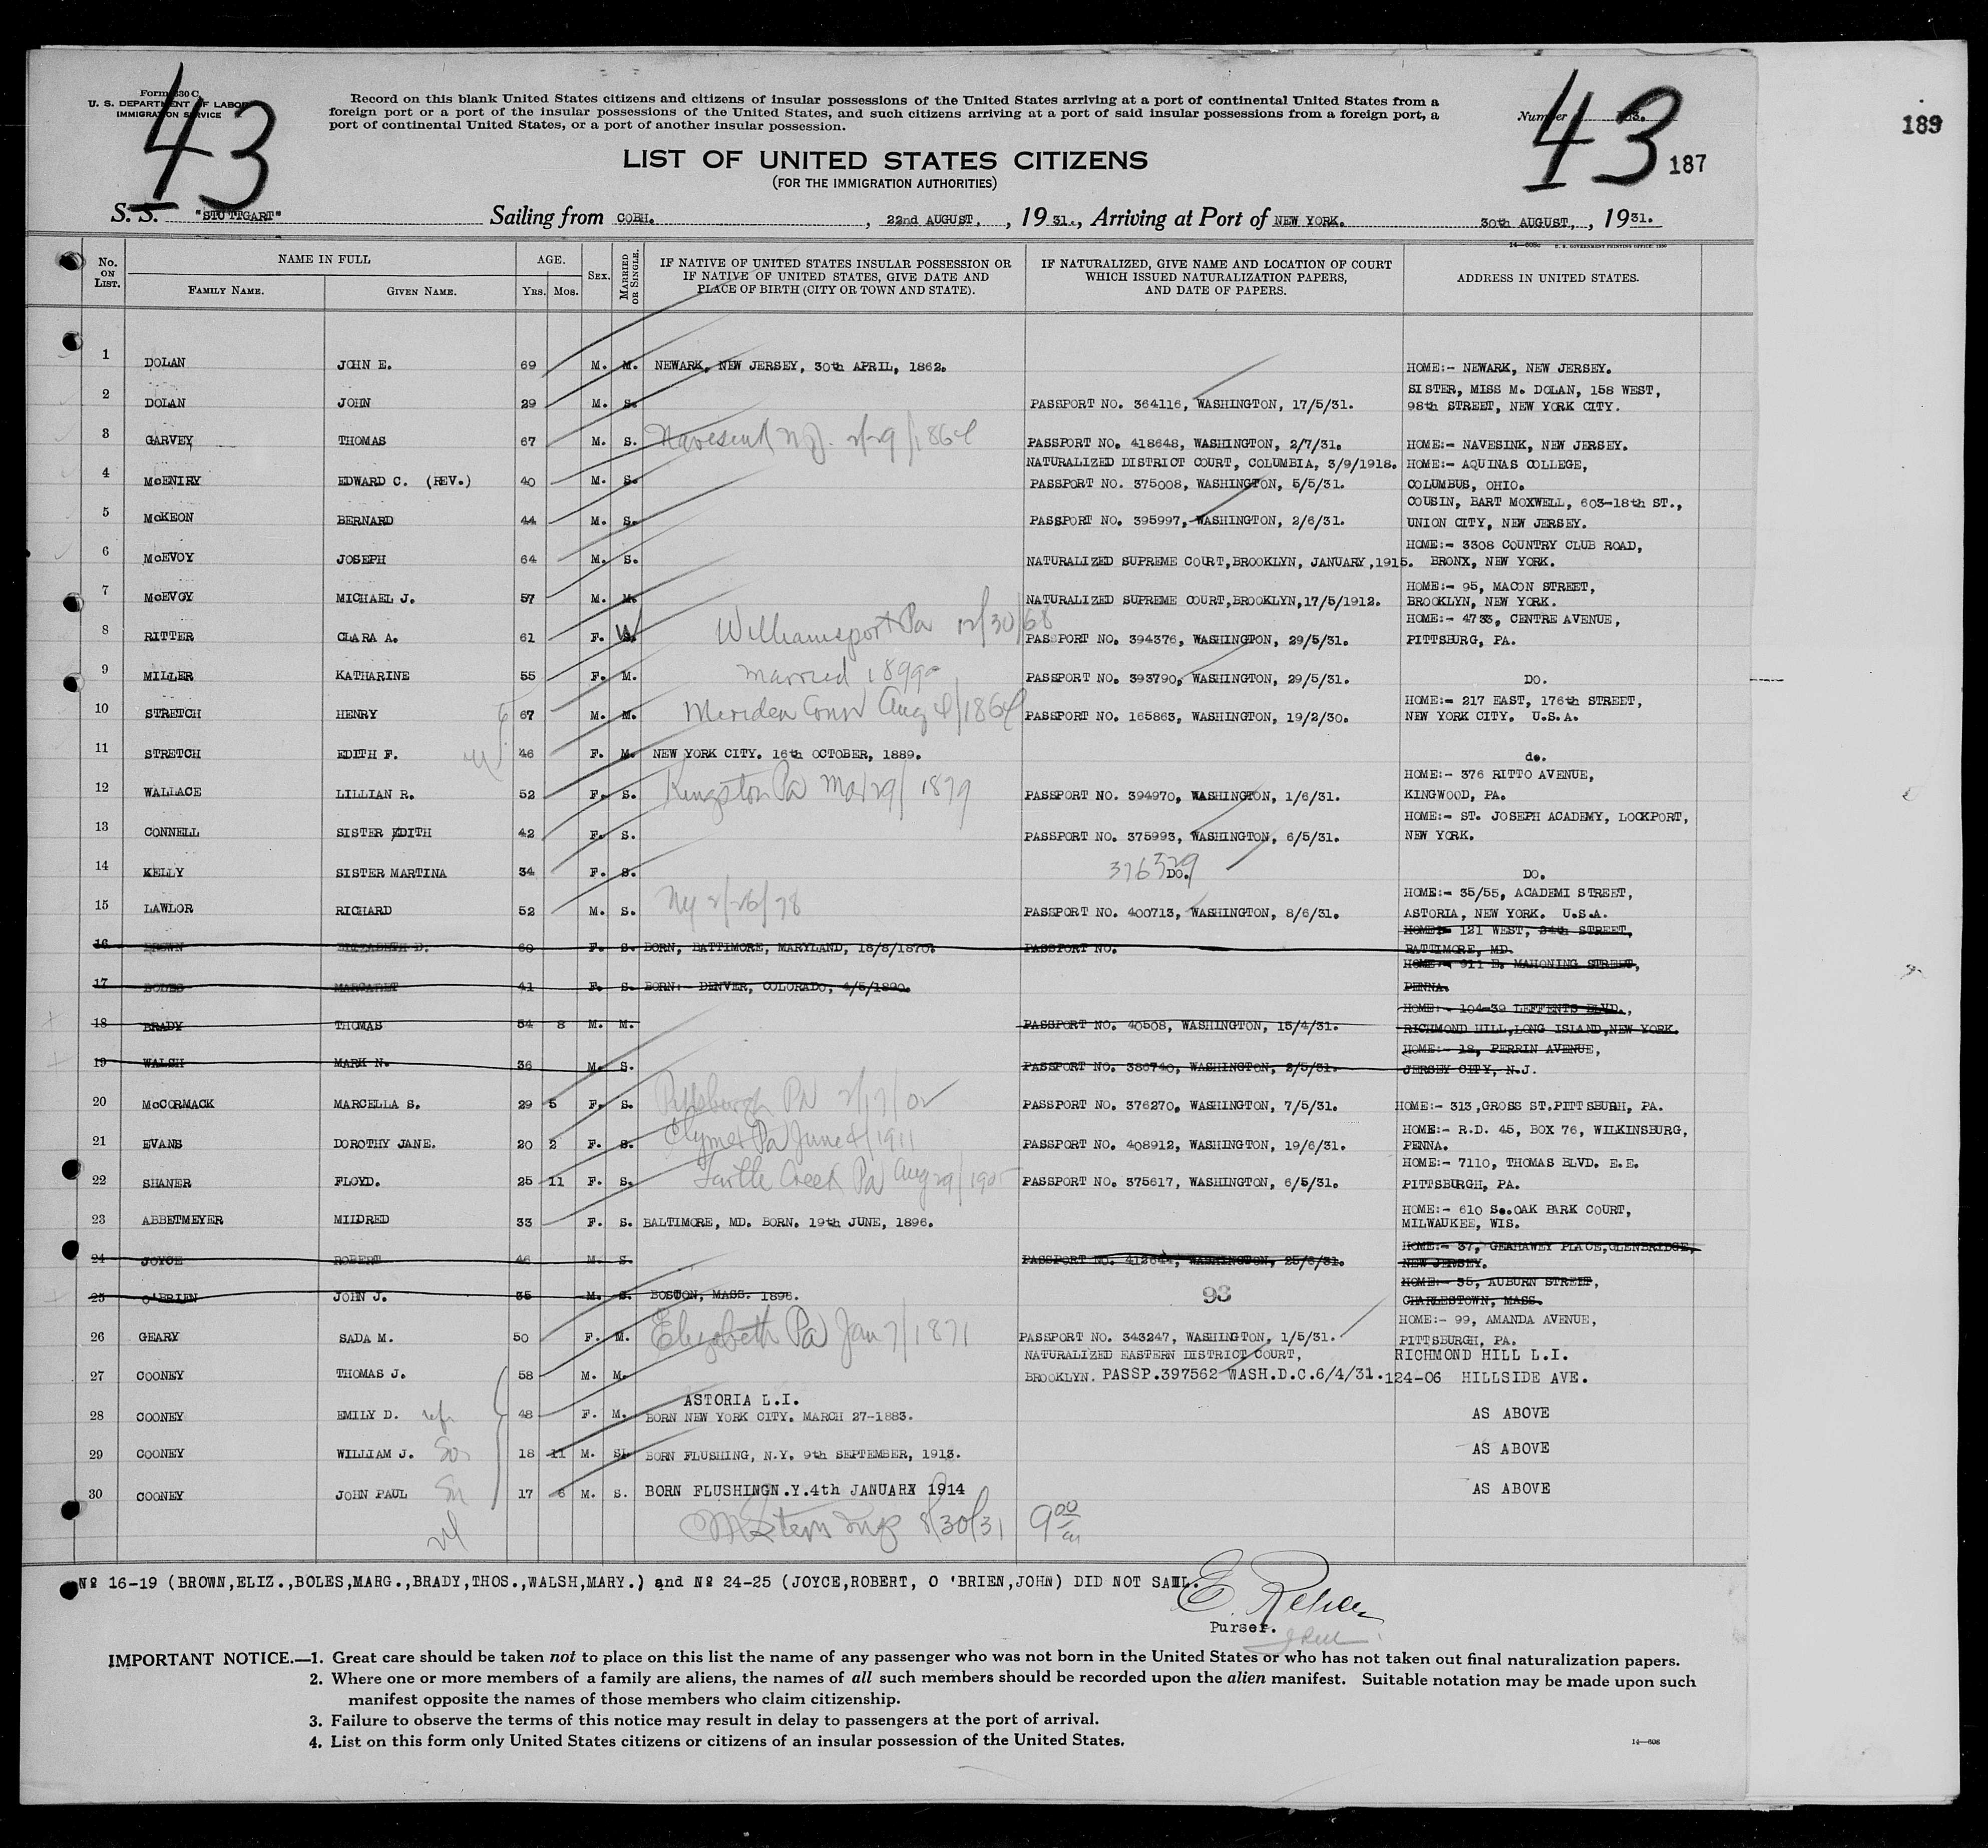 Form 630 C
U. S. DEPARTMENT OF LABOR
IMMIGRATION SERVICE
43
Record on this blank United States citizens and citizens of insular possessions of the United States arriving at a port of continental United States from a
foreign port or a port of the insular possessions of the United States, and such citizens arriving at a port of said insular possessions from a foreign port, a
port of continental United States, or a port of another insular possession.
Number
43
187
189
LIST OF UNITED STATES CITIZENS
(FOR THE IMMIGRATION AUTHORITIES)
S. S. "STUTTGART" Sailing from COBH. , 22nd AUGUST, , 19 31., Arriving at Port of NEW YORK. 30th AUGUST, , 19 31.
14—608c U. S. GOVERNMENT PRINTING OFFICE: 1930
No. ON LIST. NAME IN FULL FAMILY NAME. GIVEN NAME. AGE. Yrs. Mos. SEX. MARRIED OR SINGLE. IF NATIVE OF UNITED STATES INSULAR POSSESSION OR IF NATIVE OF UNITED STATES, GIVE DATE AND PLACE OF BIRTH (CITY OR TOWN AND STATE). IF NATURALIZED, GIVE NAME AND LOCATION OF COURT WHICH ISSUED NATURALIZATION PAPERS, AND DATE OF PAPERS. ADDRESS IN UNITED STATES.
1 DOLAN JOHN E. 69 M. M. NEWARK, NEW JERSEY, 30th APRIL, 1862. HOME:- NEWARK, NEW JERSEY.
2 DOLAN JOHN 29 M. S. PASSPORT NO. 364116, WASHINGTON, 17/5/31. SISTER, MISS M. DOLAN, 158 WEST, 98th STREET, NEW YORK CITY.
3 GARVEY THOMAS 67 M. S. Navesink NJ. 2/29/1864 PASSPORT NO. 418648, WASHINGTON, 2/7/31. HOME:- NAVESINK, NEW JERSEY.
4 McENIRY EDWARD C. (REV.) 40 M. S. NATURALIZED DISTRICT COURT, COLUMBIA, 3/9/1918. PASSPORT NO. 375008, WASHINGTON, 5/5/31. HOME:- AQUINAS COLLEGE, COLUMBUS, OHIO.
5 McKEON BERNARD 44 M. S. PASSPORT NO. 395997, WASHINGTON, 2/6/31. COUSIN, BART MOXWELL, 603-18th ST., UNION CITY, NEW JERSEY.
6 McEVOY JOSEPH 64 M. S. NATURALIZED SUPREME COURT, BROOKLYN, JANUARY, 1915. HOME:- 3308 COUNTRY CLUB ROAD, BRONX, NEW YORK.
7 McEVOY MICHAEL J. 57 M. M. NATURALIZED SUPREME COURT, BROOKLYN, 17/5/1912. HOME:- 95, MACON STREET, BROOKLYN, NEW YORK.
8 RITTER CLARA A. 61 F. W Williamsport Pa 12/30/68 PASSPORT NO. 394376, WASHINGTON, 29/5/31. HOME:- 4733, CENTRE AVENUE, PITTSBURG, PA.
9 MILLER KATHARINE 55 F. M. married 1899 PASSPORT NO. 393790, WASHINGTON, 29/5/31. DO.
10 STRETCH HENRY 67 M. M. Meriden Conn Aug 4/1864 PASSPORT NO. 165863, WASHINGTON, 19/2/30. HOME:- 217 EAST, 176th STREET, NEW YORK CITY. U.S.A.
11 STRETCH EDITH F. 46 F. M. NEW YORK CITY. 16th OCTOBER, 1889. do.
12 WALLACE LILLIAN R. 52 F. S. Kingston Pa Mar 29/1879 PASSPORT NO. 394970, WASHINGTON, 1/6/31. HOME:- 376 RITTO AVENUE, KINGWOOD, PA.
13 CONNELL SISTER EDITH 42 F. S. PASSPORT NO. 375993, WASHINGTON, 6/5/31. HOME:- ST. JOSEPH ACADEMY, LOCKPORT, NEW YORK.
14 KELLY SISTER MARTINA 34 F. S. 376379 DO. DO.
15 LAWLOR RICHARD 52 M. S. NY 2/26/78 PASSPORT NO. 400713, WASHINGTON, 8/6/31. HOME:- 35/55, ACADEMI STREET, ASTORIA, NEW YORK. U.S.A.
16 BROWN ELIZABETH D. 60 F. S. BORN, BATTIMORE, MARYLAND, 18/8/1870. PASSPORT NO. HOME:- 121 WEST, 34th STREET, BATTIMORE, MD.
17 BOLES MARGARET 41 F. S. BORN:- DENVER, COLORADO, 4/5/1890. HOME:- 911 E. MAHONING STREET, PENNA.
18 BRADY THOMAS 54 8 M. M. PASSPORT NO. 40508, WASHINGTON, 15/4/31. HOME:- 104-39 LEFFENTS BLVD., RICHMOND HILL, LONG ISLAND, NEW YORK.
19 WALSH MARK N. 36 M. S. PASSPORT NO. 386740, WASHINGTON, 2/5/31. HOME:- 18, PERRIN AVENUE, JERSEY CITY, N.J.
20 McCORMACK MARCELLA S. 29 5 F. S. Pittsburgh PA 2/17/02 PASSPORT NO. 376270, WASHINGTON, 7/5/31. HOME:- 313, GROSS ST. PITTSBURH, PA.
21 EVANS DOROTHY JANE. 20 2 F. S. Clymer Pa June 4/1911 PASSPORT NO. 408912, WASHINGTON, 19/6/31. HOME:- R.D. 45, BOX 76, WILKINSBURG, PENNA.
22 SHANER FLOYD. 25 11 F. S. Turtle Creek Pa Aug 29/1905 PASSPORT NO. 375617, WASHINGTON, 6/5/31. HOME:- 7110, THOMAS BLVD. E.E. PITTSBURGH, PA.
23 ABBETMEYER MILDRED 33 F. S. BALTIMORE, MD. BORN. 19th JUNE, 1896. HOME:- 610 So.OAK PARK COURT, MILWAUKEE, WIS.
24 JOYCE ROBERT 46 M. S. PASSPORT NO. 412644, WASHINGTON, 25/6/31. HOME:- 37, GEAHAWEY PLACE, GLENBRIDGE, NEW JERSEY.
25 O'BRIEN JOHN J. 35 M. S. BOSTON, MASS. 1896. 93 HOME:- 35, AUBURN STREET, CHARLESTOWN, MASS.
26 GEARY SADA M. 50 F. M. Elizabeth Pa Jan 7/1871 PASSPORT NO. 343247, WASHINGTON, 1/5/31. HOME:- 99, AMANDA AVENUE, PITTSBURGH, PA.
27 COONEY THOMAS J. 58 M. M. NATURALIZED EASTERN DISTRICT COURT, BROOKLYN. PASSP.397562 WASH.D.C.6/4/31. RICHMOND HILL L.I. 124-06 HILLSIDE AVE.
28 COONEY EMILY D. 48 F. M. ASTORIA L.I. BORN NEW YORK CITY. MARCH 27-1883. AS ABOVE
29 COONEY WILLIAM J. Son 18 11 M. S. BORN FLUSHING, N.Y. 9th SEPTEMBER, 1913. AS ABOVE
30 COONEY JOHN PAUL Son 17 6 M. S. BORN FLUSHINGN.Y.4th JANUARY 1914 AS ABOVE
8/30/31 9 00 am
Nº 16-19 (BROWN,ELIZ.,BOLES,MARG.,BRADY,THOS.,WALSH,MARY.) and Nº 24-25 (JOYCE,ROBERT, O 'BRIEN,JOHN) DID NOT SAIL.
Purser.
IMPORTANT NOTICE.—1. Great care should be taken not to place on this list the name of any passenger who was not born in the United States or who has not taken out final naturalization papers.
2. Where one or more members of a family are aliens, the names of all such members should be recorded upon the alien manifest. Suitable notation may be made upon such
manifest opposite the names of those members who claim citizenship.
3. Failure to observe the terms of this notice may result in delay to passengers at the port of arrival.
4. List on this form only United States citizens or citizens of an insular possession of the United States.
14—608